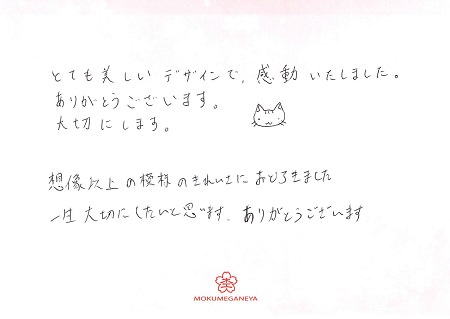 とても美しいデザインで、感動いたしました。
ありがとうございます。
大切にします。
想像以上の模様のきれいさにおどろきました
一生大切にしたいと思います。ありがとうございます
MOKUMEGANEYA